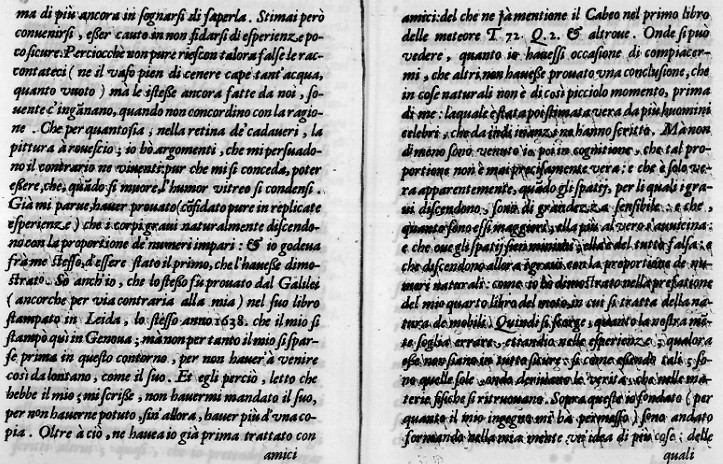 ma di più ancora in sognarsi di saperla. Stimai però
convenirsi, eßer cauto in non fidarsi di esperienze po-
co sicure. Perciocche non pure riescon talora false le rac-
contateci (ne il vaso pien di cenere cape tant'acqua,
quanto vuoto) ma le istesse ancora fatte da noi, so-
uente c'ingānano, quando non concordino con la ragio-
ne. Che per quanto sia, nella retina de' cadaueri, la
pittura à rouescio; io hò argomenti, che mi persuado-
no il contrario ne viuenti: pur che mi si conceda, poter
eßere, che, quādo si muore, l'humor vitreo si condensi.
Già mi parue, hauer prouato (cōfidato pure in replicate
esperienze) che i corpi graui naturalmente discendo-
no con la proportione de numeri impari: & io godeua
frà me stesso, d'essere stato il primo, che l'hauesse dimo-
strato. Sò anch'io, che lo steßo fù prouato dal Galilei
(ancorche per via contraria alla mia) nel suo libro
stampato in Leida, lo stesso anno 1638. che il mio si
stampò qui in Genoua; mà non per tanto il mio si spar-
se prima in questo contorno, per non hauer à venire
così da lontano, come il suo. Et egli perciò, letto che
hebbe il mio; mi scrisse, non hauermi mandato il suo,
per non hauerne potuto, sin' allora, hauer più d'vna co-
pia. Oltre à ciò, ne hauea io già prima trattato con
amici
amici: del che ne fà mentione il Cabeo nel primo libro
delle meteore T. 72. Q. 2. & altroue. Onde si può
vedere, quanto io hauessi occasione di compiacer-
mi, che altri non hauesse prouato vna conclusione, che
in cose naturali non è di così picciolo momento, prima
di me: laquale è stata poi stimata vera da più huomini
celebri, che da indi inanzi ne hanno scritto. Mà non
di meno sono venuto io poi in cognitione, che tal pro-
portione non è mai precisamente vera: e che è solo ve-
ra apparentemente, quādo gli spatij, per li quali i gra-
ui discendono, sono di grandezza sensibile: e che,
quanto sono essi maggiori, ella più al vero s'auuicina:
e che oue gli spatij sien minimi, ella è del tutto falsa: e
che discendono allora i graui con la proportione de nu-
meri naturali: come io hò dimostrato nella prefatione
del mio quarto libro del moto, in cui si tratta della na-
tura de mobili. Quindi si scorge, quanto la nostra mē-
te soglia errare, etiandio nelle esperienze; qualora
esse non siano in tutto sicure: si come essendo tali; so-
no quelle sole onde deriuano le verità, che nelle ma-
terie fisiche si ritruouano. Sopra queste io fondato (per
quanto il mio ingegno mi hà permesso) sono andato
formando nella mia mente vn' idea di più cose: delle
quali